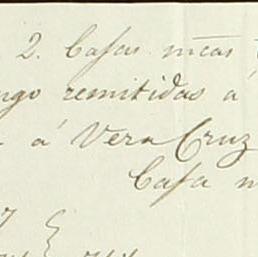 2. Casas mcas
ngo remitidas a
a á Vera Cruz
Casa m